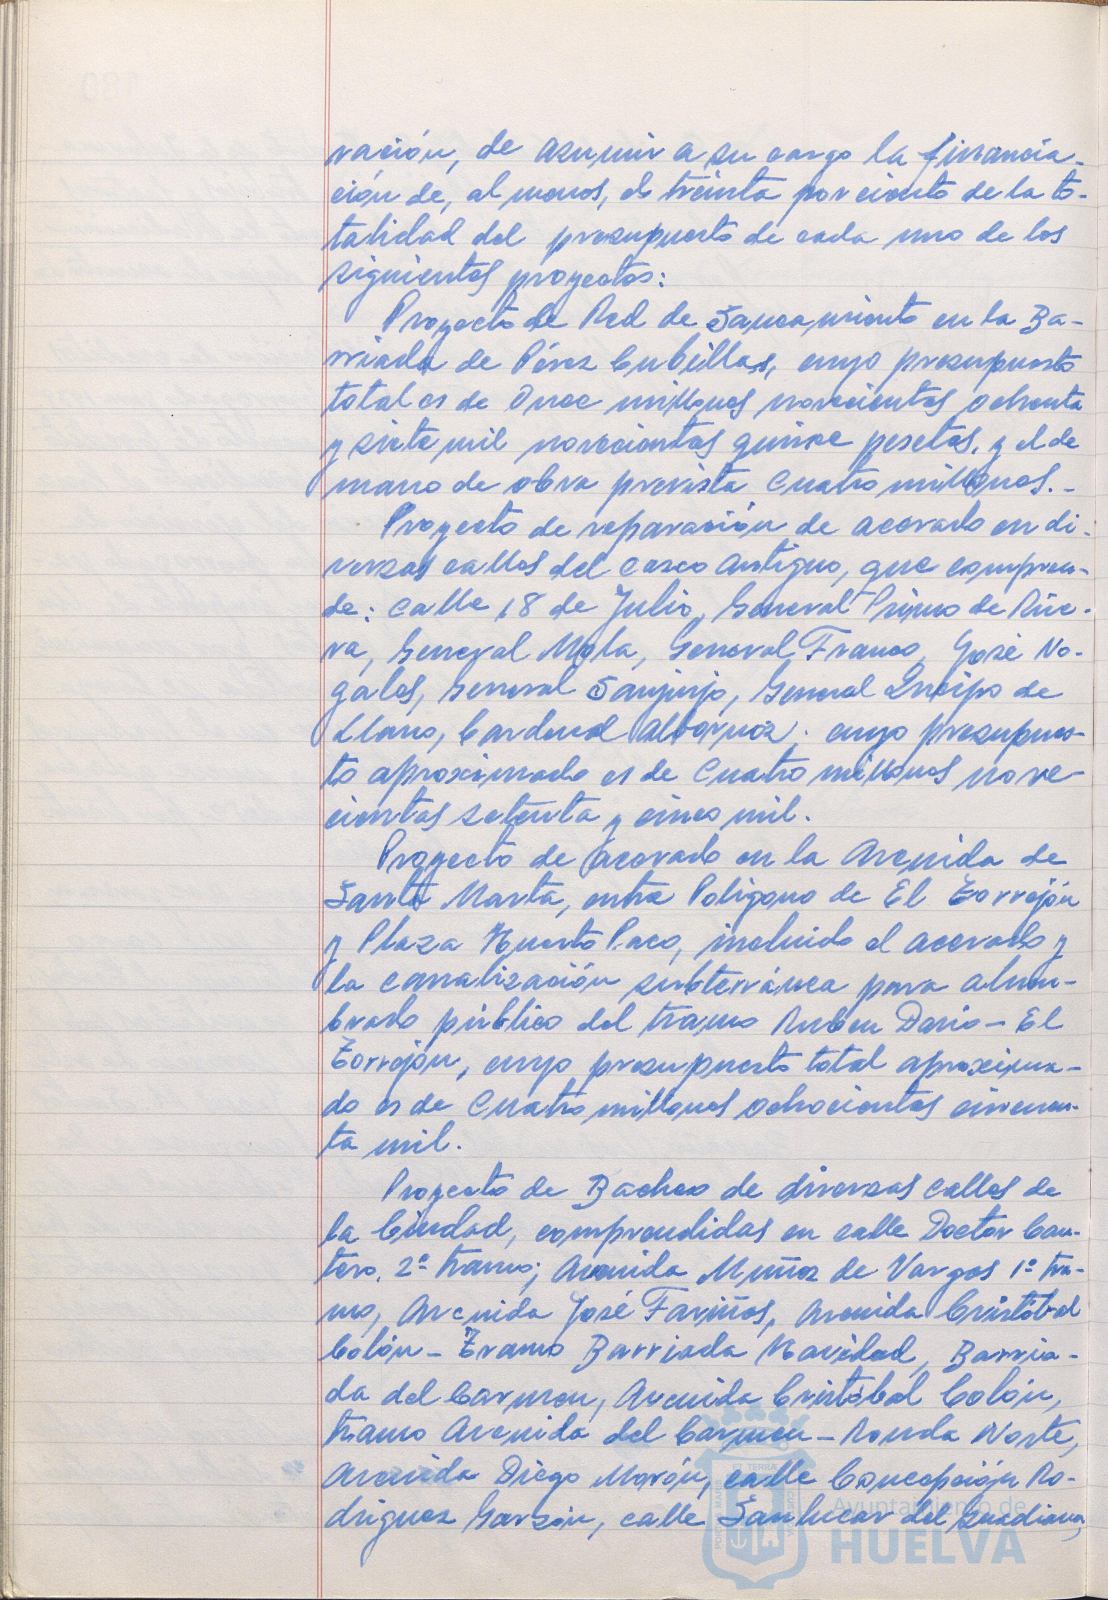 ración, de asumir a su cargo la financia-
ción de, al menos, el treinta por ciento de la to-
talidad del presupuesto de cada uno de los
siguientes proyectos:
Proyecto de Red de Saneamiento en la Ba-
rriada de Pérez Cubillas, cuyo presupuesto
total es de Once millones novecientos ochenta
y siete mil novecientos quince pesetas, y el de
mano de obra prevista Cuatro millones.-
Proyecto de reparación de acerado en di-
versas calles del casco antiguo, que compren-
de: calle 18 de Julio, General Primo de Rive-
ra, General Mola, General Franco, José No-
gales, General Sanjurjo, General Queipo de
Llano, Cardenal Albornoz; cuyo presupues-
to aproximado es de Cuatro millones nove-
cientas setenta y cinco mil.
Proyecto de acerado en la Avenida de
Santa Marta, entre Polígono de El Torrejón
y Plaza Huerto Paco, incluido el acerado y
la canalización subterránea para alum-
brado público del tramo Ruben Dario - El
Torrejón, cuyo presupuesto total aproxima-
do es de Cuatro millones ochocientas cincuen-
ta mil.
Proyecto de Bacheo de diversas calles de
la Ciudad, comprendidas en calle Doctor Can-
tero, 2º tramo; Avenida Muñoz de Vargas 1º tra-
mo, Avenida José Fariñas, Avenida Cristóbal
Colón - Tramo Barriada Navidad, Barria-
da del Carmen, Avenida Cristóbal Colón,
tramo Avenida del Carmen - Ronda Norte,
Avenida Diego Morón, calle Concepción Ro-
driguez Garzón, calle Sanlucar del Guadiana,
Ayuntamiento de
HUELVA